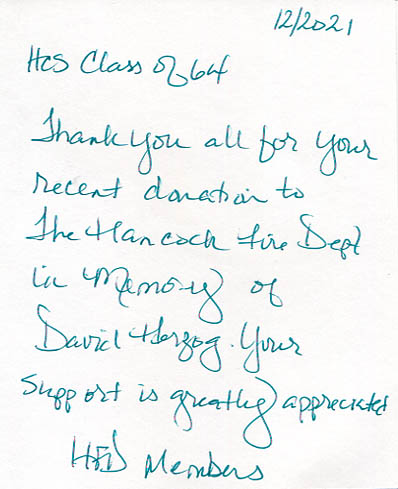 12/2021
HCS Class of 64
Thank you all for your
recent donation to
The Hancock Fire Dept
in Memory of
David Herzog. Your
support is greatly appreciated
HFD Members